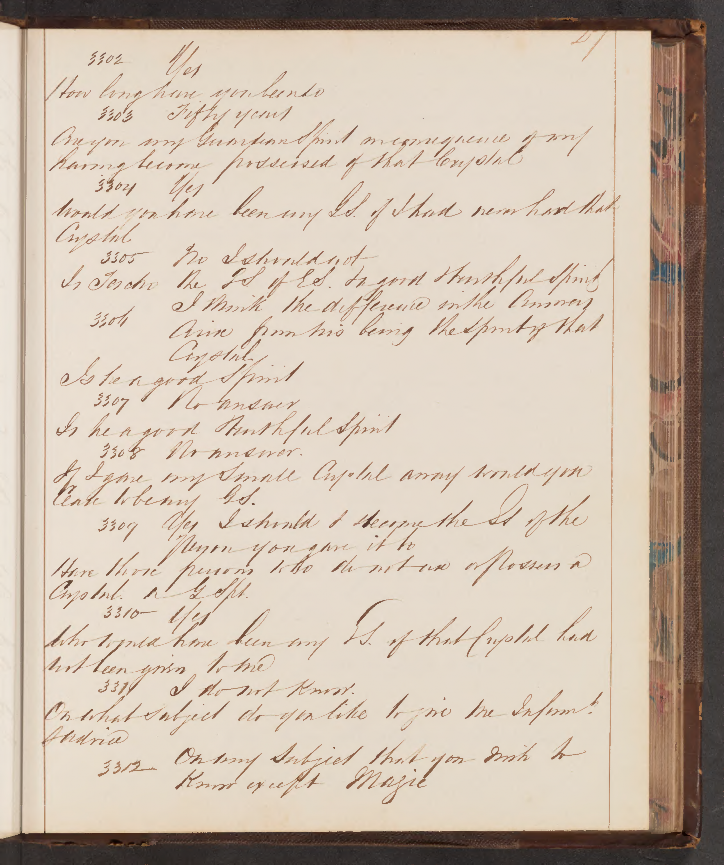 3302 Yes
How long have you been so
3303 Fifty years
Are you my Guardian Spirit in consequence of my
having become possessed of that Crystal
3304 Yes
Would you have been my G.S. if I had never had that
Crystal
3305 No I should not
Is the G.S. of E.S. a good & truthful Spirit
3306 I think the difference in the Answers
arise from his being the Spirit of that
Crystal
Is he a good Spirit
3307 No answer
Is he a good truthful Spirit
3308 No answer.
If I gave my Small Crystal away would you
Cease to be my G.S.
3309 Yes I should & become the GS of the
Person you gave it to
Have those persons who do not use or Possess a
Crystal. a G Spt.
3310 Yes
Who would have been my G.S. if that Crystal had
not been given to me
3311 I do not Know.
On what subject do you like to give me Informt.
& advice
3312 On any Subject that you wish to
Know except Magic